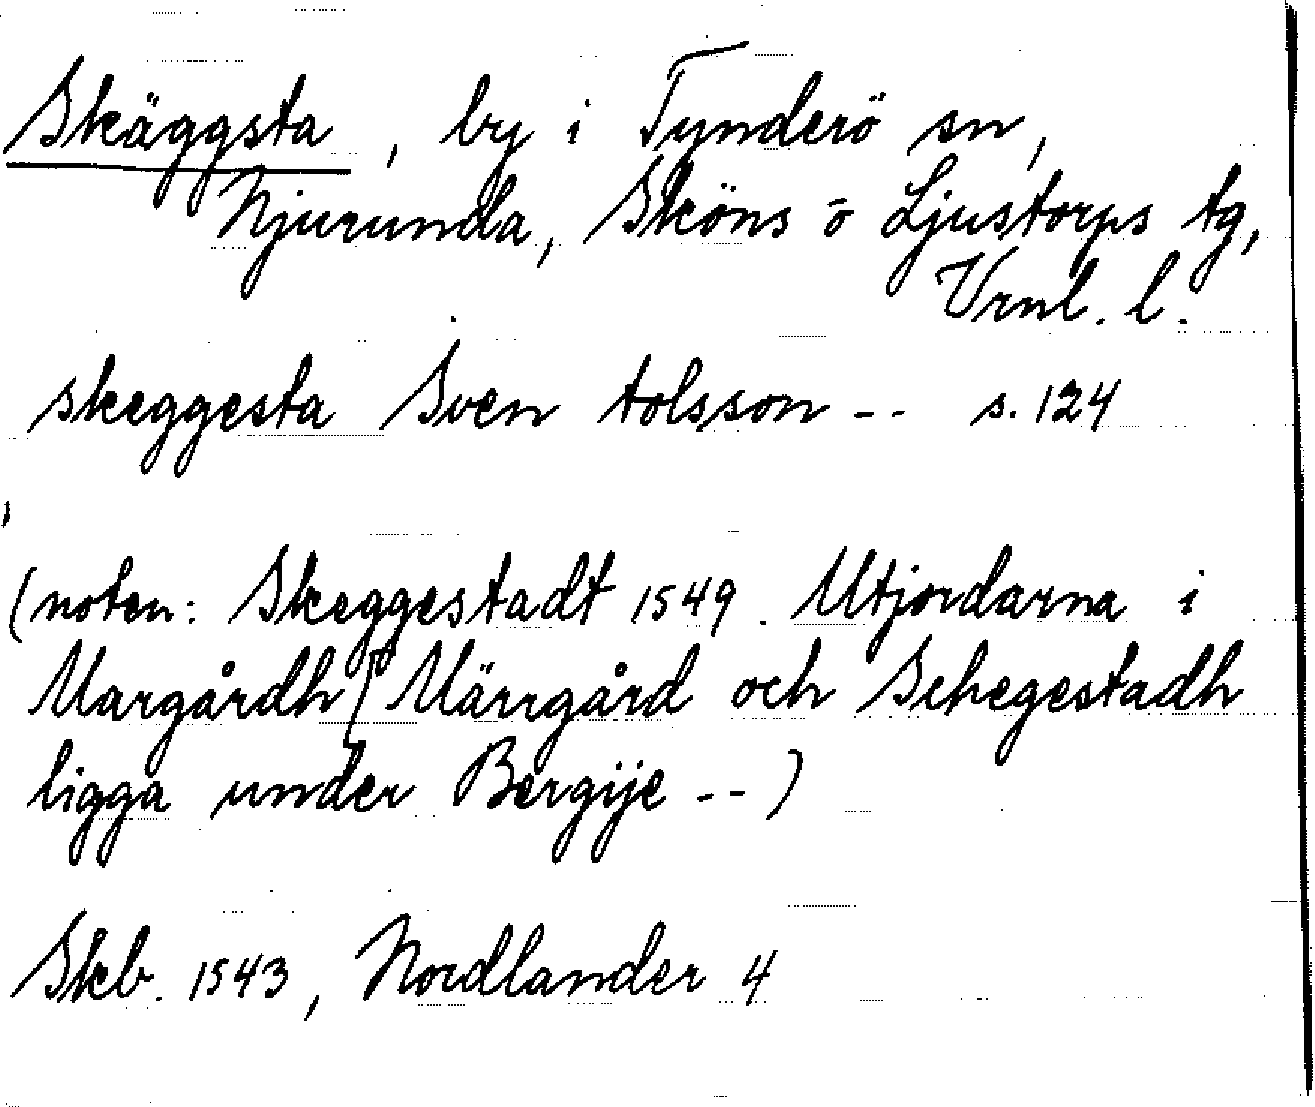 Skäggsta, by i Tynderö sn,
Njurunda, Sköns o Ljustorps tg,
Vrnl. l.
skeggesta Sven tolsson -- s. 124
(noten: Skeggestadt 1549. Utjordarna i
Margårdh / Märrgård och Schegestadh
ligga under Bergije --)
Skb. 1543, Nordlander 4